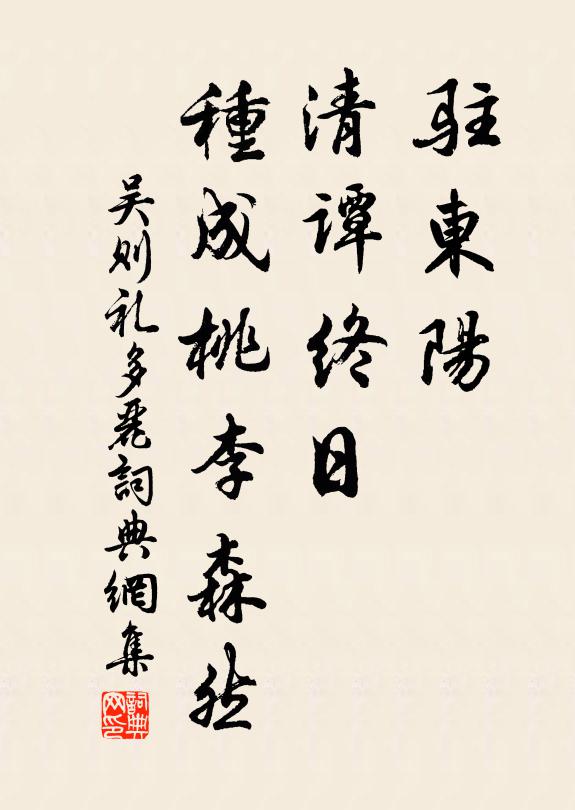 駐東陽
清譚終日
種成桃李森然
吴则礼多麗詞典網集
詞典
网印